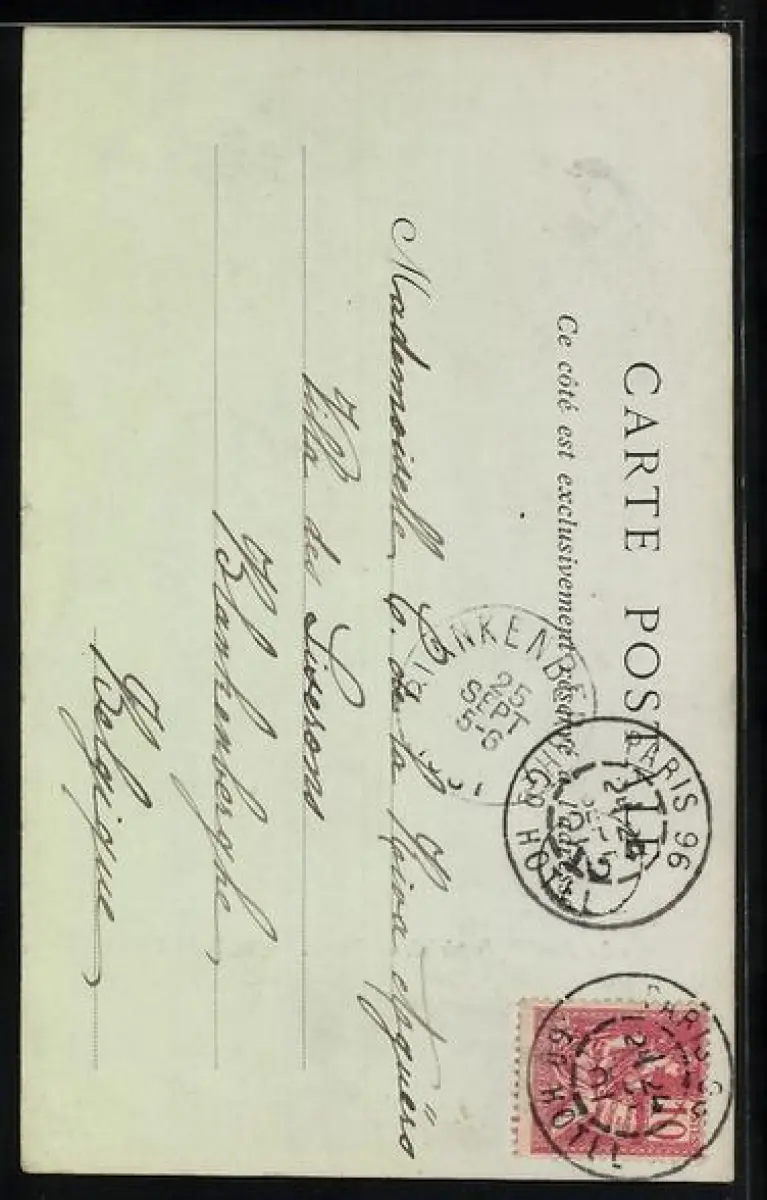 CARTE POSTALE
Ce côté est exclusivement réservé à l'adresse
PARIS 96
GD HOTEL
BLANKENBERGHE
25
SEPT
5-6
PARIS 96
GD HOTEL
10
Mademoiselle C. de la
Villa des Liserons
Blankenberghe,
Belgique